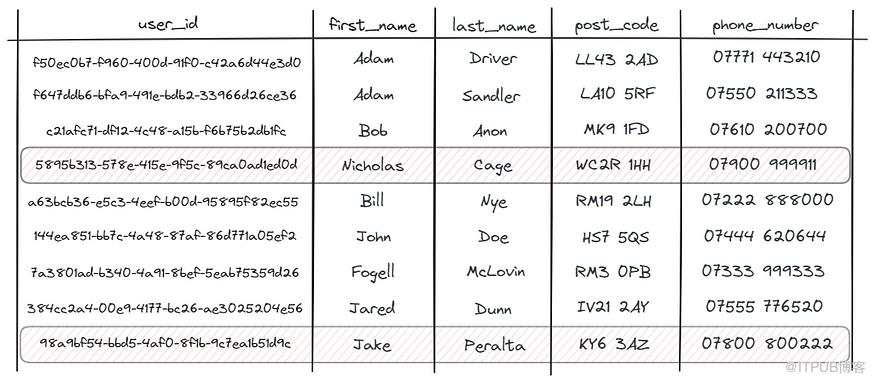 user_id first_name last_name post_code phone_number
f50ec0b7-f960-400d-91f0-c42a6d44e3d0 Adam Driver LL43 2AD 07771 443210
f647ddb6-bfa9-491e-bdb2-33966d26ce36 Adam Sandler LA10 5RF 07550 211333
c21afc71-df12-4c48-a15b-f6b75b2db1fc Bob Anon MK9 1FD 07610 200700
5895b313-578e-415e-9f5c-89ca0ad1ed0d Nicholas Cage WC2R 1HH 07900 999911
a63bcb36-e5c3-4eef-b00d-95895f82ec55 Bill Nye RM19 2LH 07222 888000
144ea851-bb7c-4a48-87af-86d771a05ef2 John Doe HS7 5QS 07444 620644
7a3801ad-b340-4a91-8bef-5eab75359d26 Fogell McLovin RM3 0PB 07333 999333
384cc2a4-00e9-4177-bc26-ae3025204e56 Jared Dunn IV21 2AY 07555 776520
98a9bf54-bbd5-4af0-8f1b-9c7ea1b51d9c Jake Peralta KY6 3AZ 07800 800222
@ITPUB博客